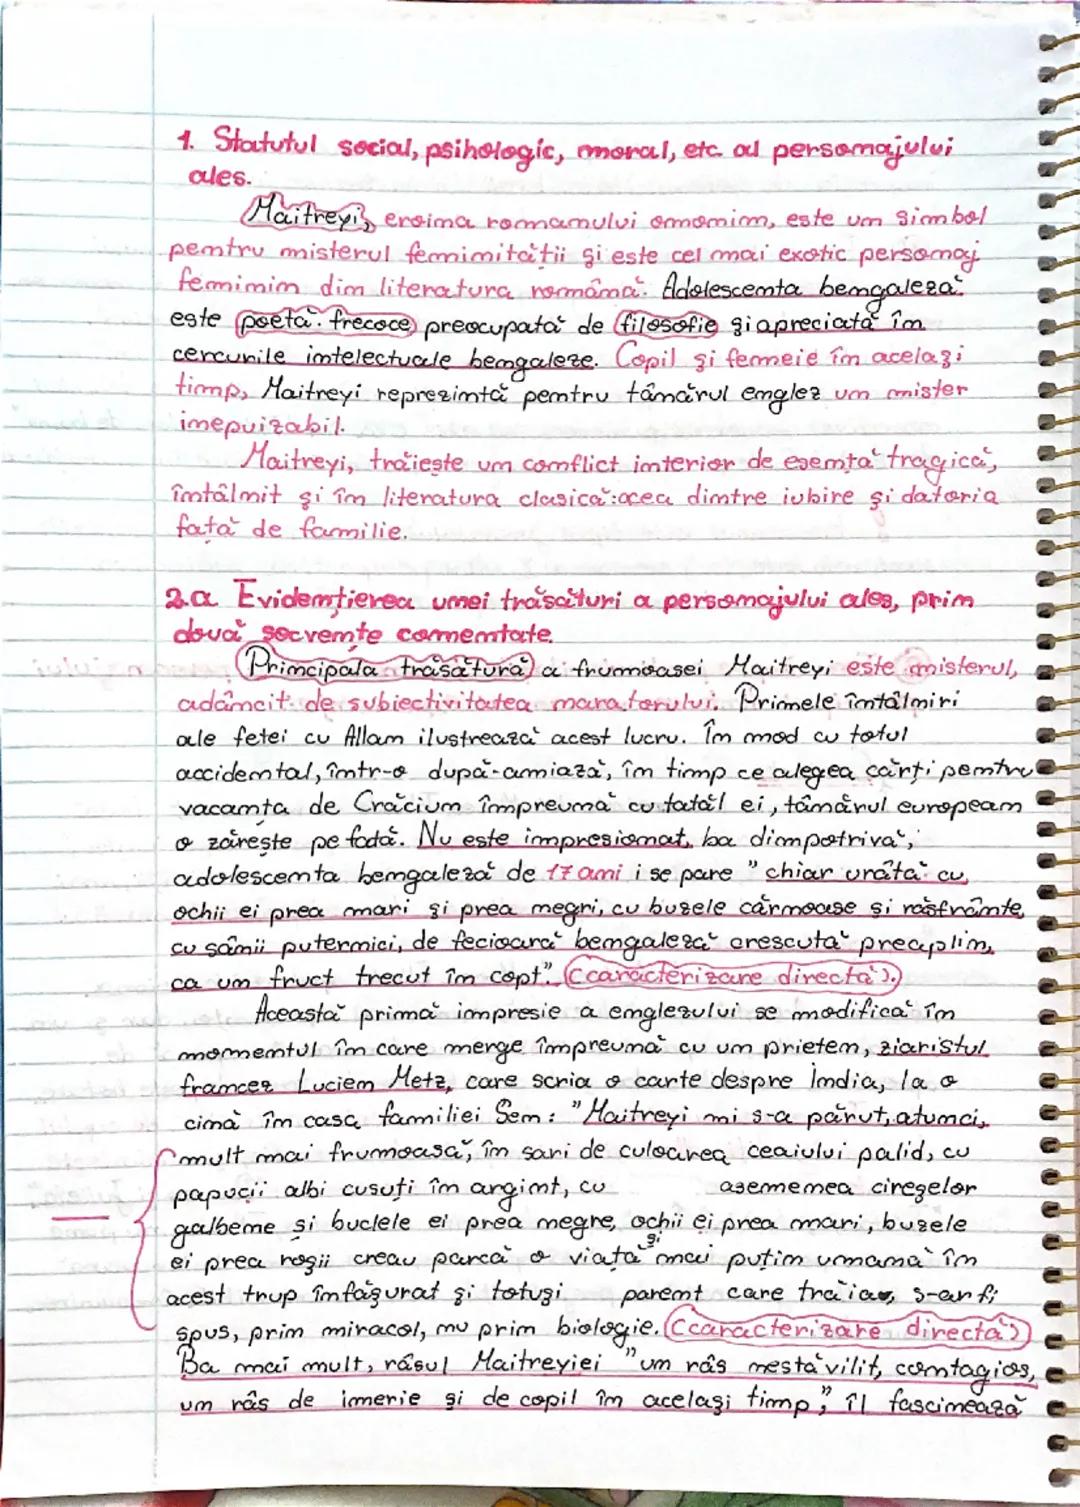 1. Statutul social, psihologic, moral, etc. al personajului
ales.
Maitreyi, eroina romanului omonim, este un simbol
pentru misterul feminității și este cel mai exotic personaj
feminin din literatura română. Adolescenta bengaleză
este poetă frecoce preocupată de filosofie și apreciată în
cercurile intelectuale bengaleze. Copil și femeie în același
timp, Maitreyi reprezintă pentru tânărul englez un mister
inepuizabil.
Maitreyi, trăiește un conflict interior de esență tragică,
întâlnit și în literatura clasică: acea dintre iubire și datoria
față de familie.
2.a Evidențierea unei trăsături a personajului ales, prin
două secvențe comentate.
Principala trăsătură a frumoasei Maitreyi este misterul,
adâncit de subiectivitatea naratorului. Primele întâlniri
ale fetei cu Allan ilustrează acest lucru. În mod cu totul
accidental, într-o după-amiază, în timp ce alegea cărți pentru
vacanța de Crăciun împreună cu tatăl ei, tânărul european
o zărește pe fată. Nu este impresionat, ba dimpotrivă,
adolescenta bengaleză de 17 ani i se pare "chiar urâtă cu
ochii ei prea mari și prea negri, cu buzele cărnoase și răsfrânte,
cu sânii puternici, de fecioară bengaleză crescută preaplin,
ca un fruct trecut în copt". (caracterizare directă).
Această primă impresie a englezului se modifică în
momentul în care merge împreună cu un prieten, ziaristul
francez Lucien Metz, care scria o carte despre India, la o
cină în casa familiei Sen: "Maitreyi mi s-a părut, atunci,
mult mai frumoasă, în sari de culoarea ceaiului palid, cu
papucii albi cusuți în argint, cu asemenea cireșelor
galbene și buclele ei prea negre, ochii ei prea mari, buzele
ei prea roșii creau parcă o viață și mai puțin umană în
acest trup înfășurat și totuși parent care trăia, s-ar fi
spus, prin miracol, nu prin biologie. (caracterizare directă)
Ba mai mult, râsul Maitreyiei "un râs nestăvilit, contagios,
un râs de inerie și de copil în același timp", îl fascinează